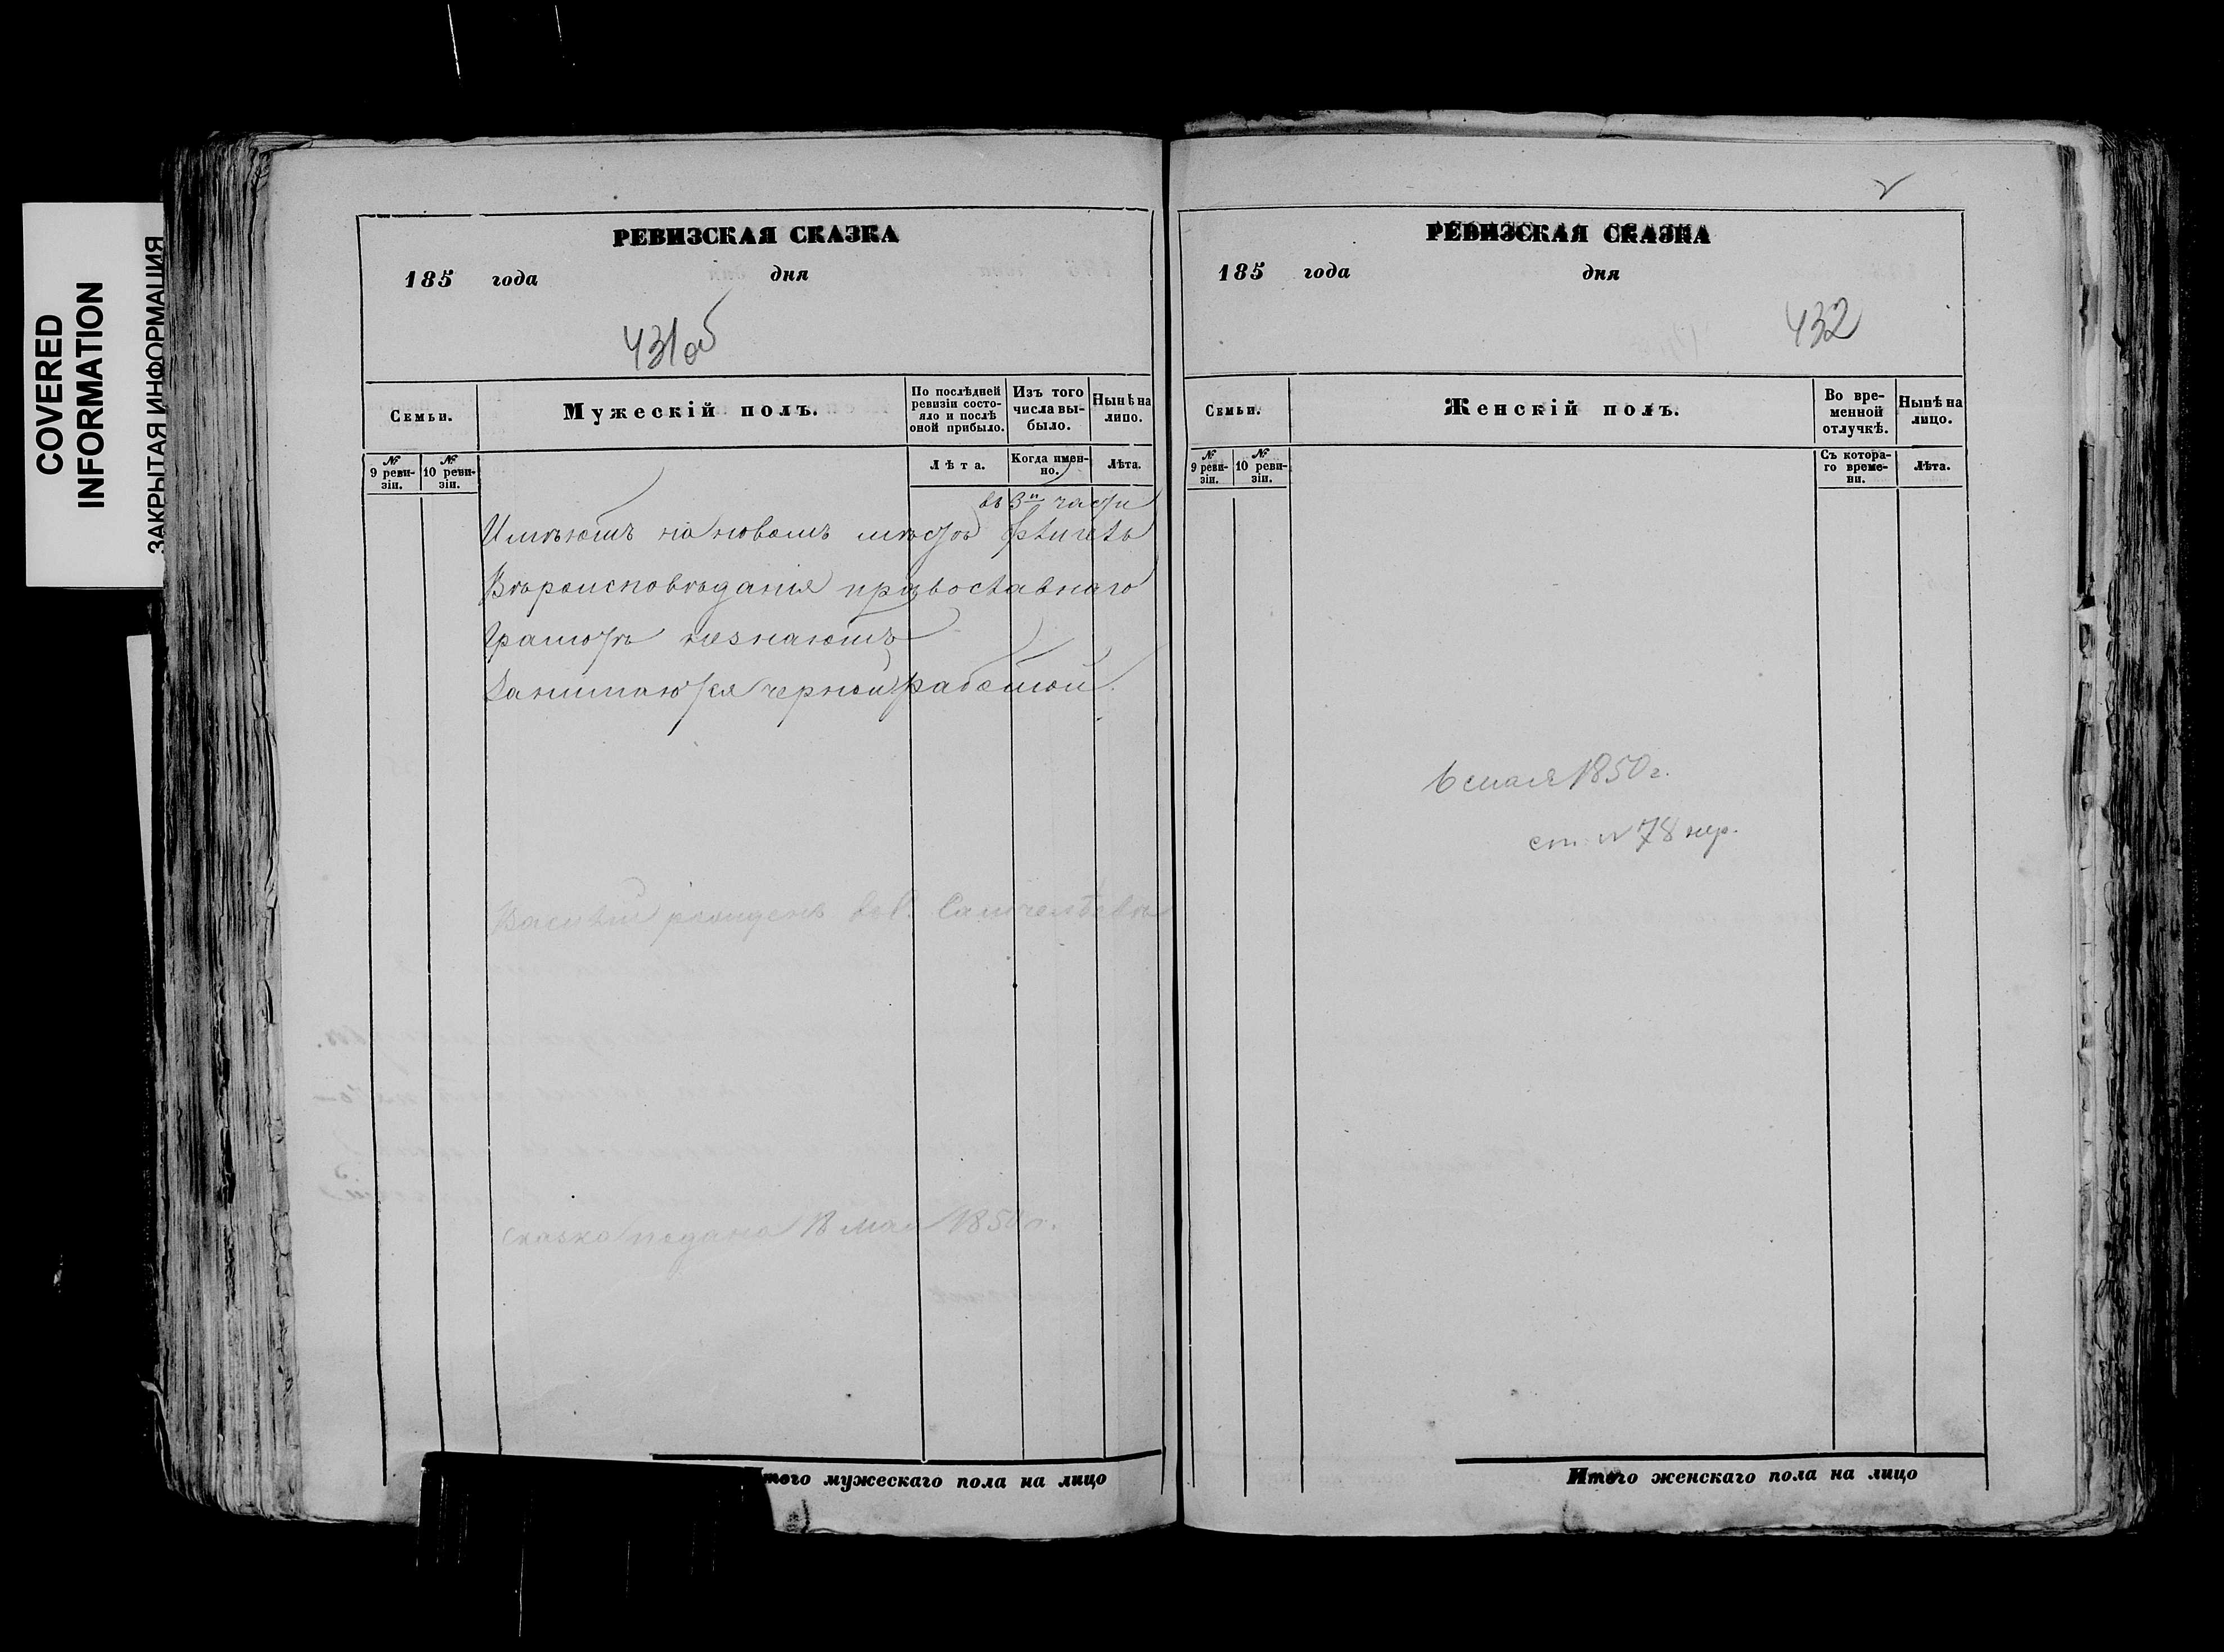 COVERED
INFORMATION
ЗАКРЫТАЯ ИНФОРМАЦИЯ
РЕВИЗСКАЯ СКАЗКА
185 года дня
431об
Семьи.
Мужескій полъ.
По послѣдней ревизіи состояло и послѣ оной прибыло.
Изъ того числа выбыло.
Нынѣ на лицо.
№ 9 ревизіи.
№ 10 ревизіи.
Лѣта.
Когда именно.
Лѣта.
въ 3й части
Имѣютъ на новомъ мѣстѣ флигель
Вѣроисповѣданія православнаго
Грамотѣ незнаютъ
Занимаются черной работой.
Василій рожденъ
Сказка подана 18 мая 1850 г.
Итого мужескаго пола на лицо
РЕВИЗСКАЯ СКАЗКА
185 года дня
432
Семьи.
Женскій полъ.
Во временной отлучкѣ.
Нынѣ на лицо.
№ 9 ревизіи.
№ 10 ревизіи.
Съ котораго времени.
Лѣта.
6 мая 1850 г.
ст. № 78
Итого женскаго пола на лицо